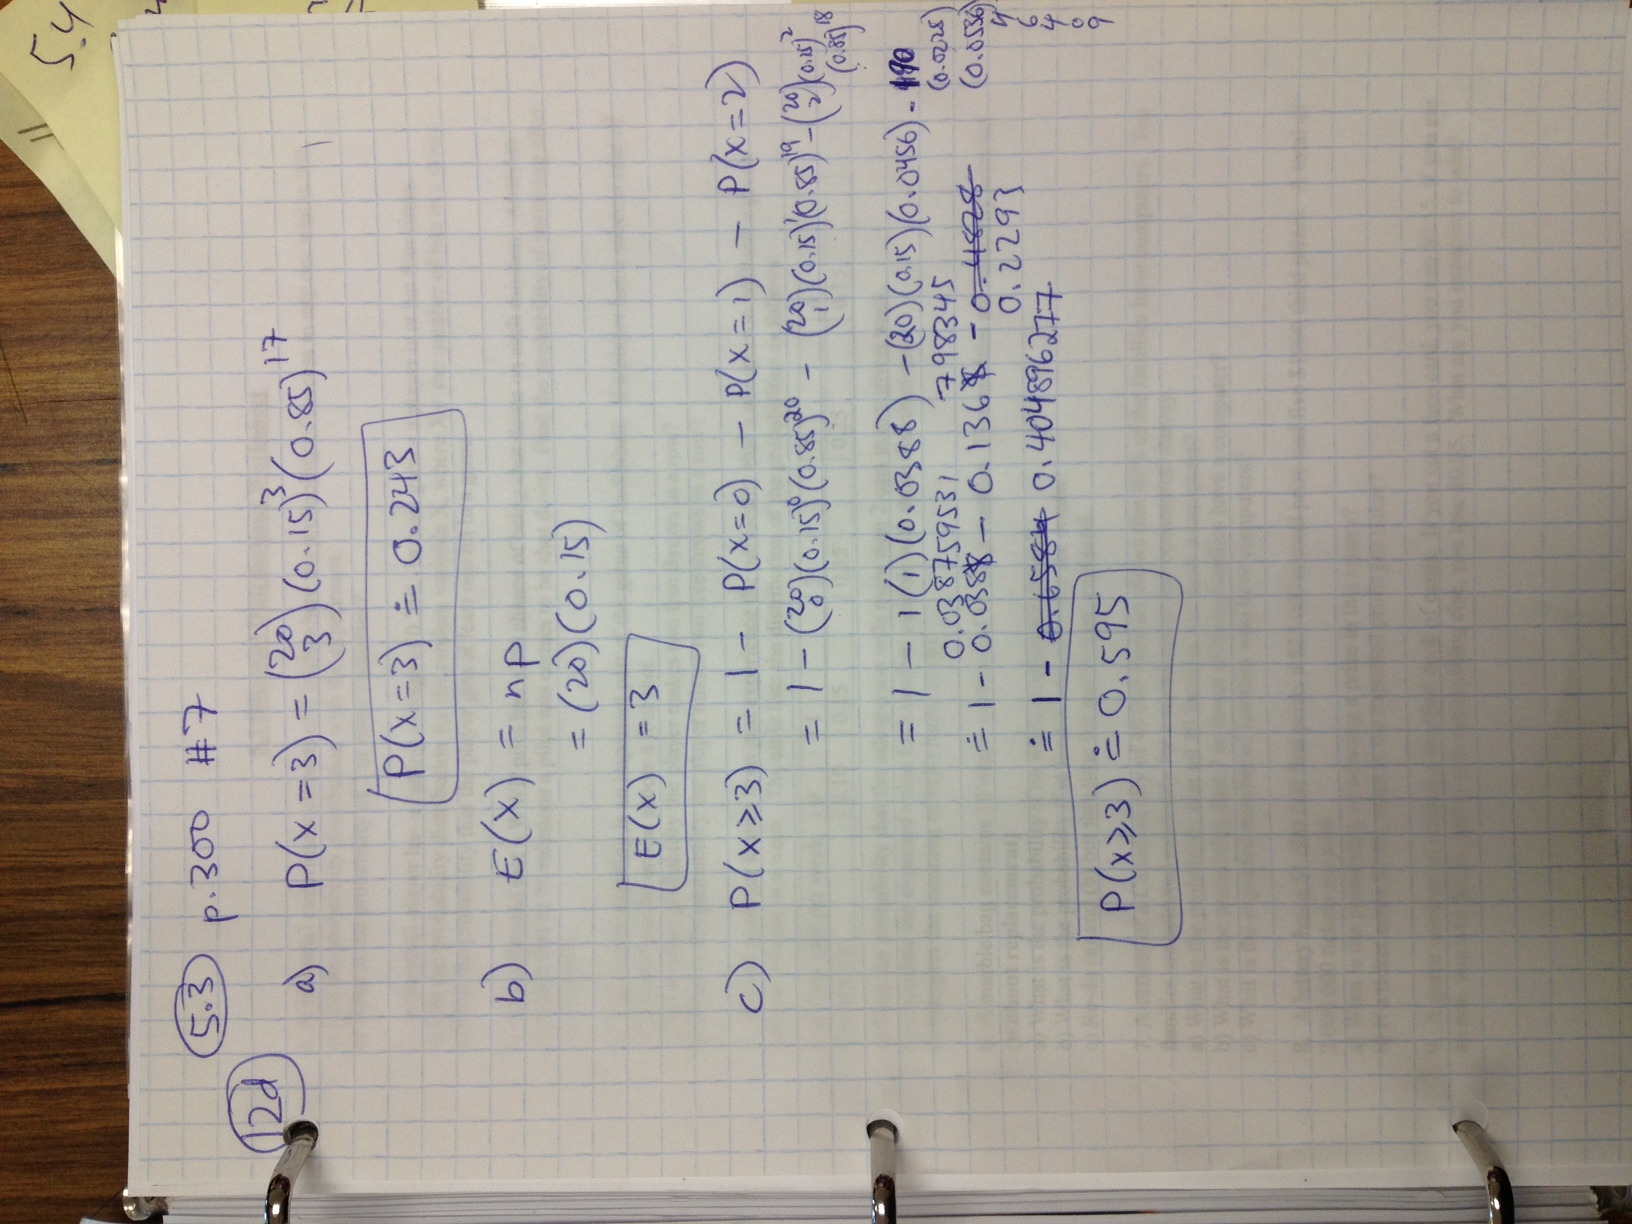 5.4
5.3 p.300 #7
12d
a) P(x=3) = (20 3)(0.15)^3(0.85)^17
P(x=3) ≐ 0.243
b) E(x) = np
= (20)(0.15)
E(x) = 3
c) P(x≥3) = 1 - P(x=0) - P(x=1) - P(x=2)
= 1 - (20 0)(0.15)^0(0.85)^20 - (20 1)(0.15)^1(0.85)^19 - (20 2)(0.15)^2(0.85)^18
= 1 - 1(1)(0.0388) - (20)(0.15)(0.0456) - 190(0.0225)(0.0536)
0.038759531 798345 4 6 4 0 9
≐ 1 - 0.0388 - 0.1368 - 0.4828
0.2293
≐ 1 - 0.6584 0.404896277
P(x≥3) ≐ 0.595